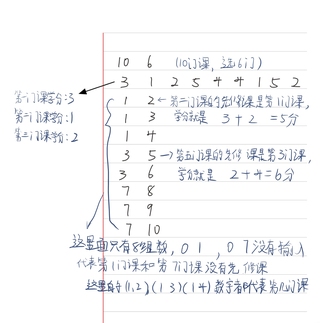 10 6 (10门课，选6门)
3 1 2 5 4 4 1 5 2
第一门课学分:3
第二门课学分:1
第三门课学分:2
1 2 ← 第二门课的先修课是第1门课,
1 3 学分就是 3+2 =5分
1 4
3 5 → 第五门课的先修课是第3门课,
3 6 学分就是 2+4=6分
7 8
7 9
7 10
这里面只有8组数, 0 1 , 0 7 没有输入
代表第1门课和第7门课没有先修课
这里的(1,2),(1 3)(1 4)数字都代表第几门课